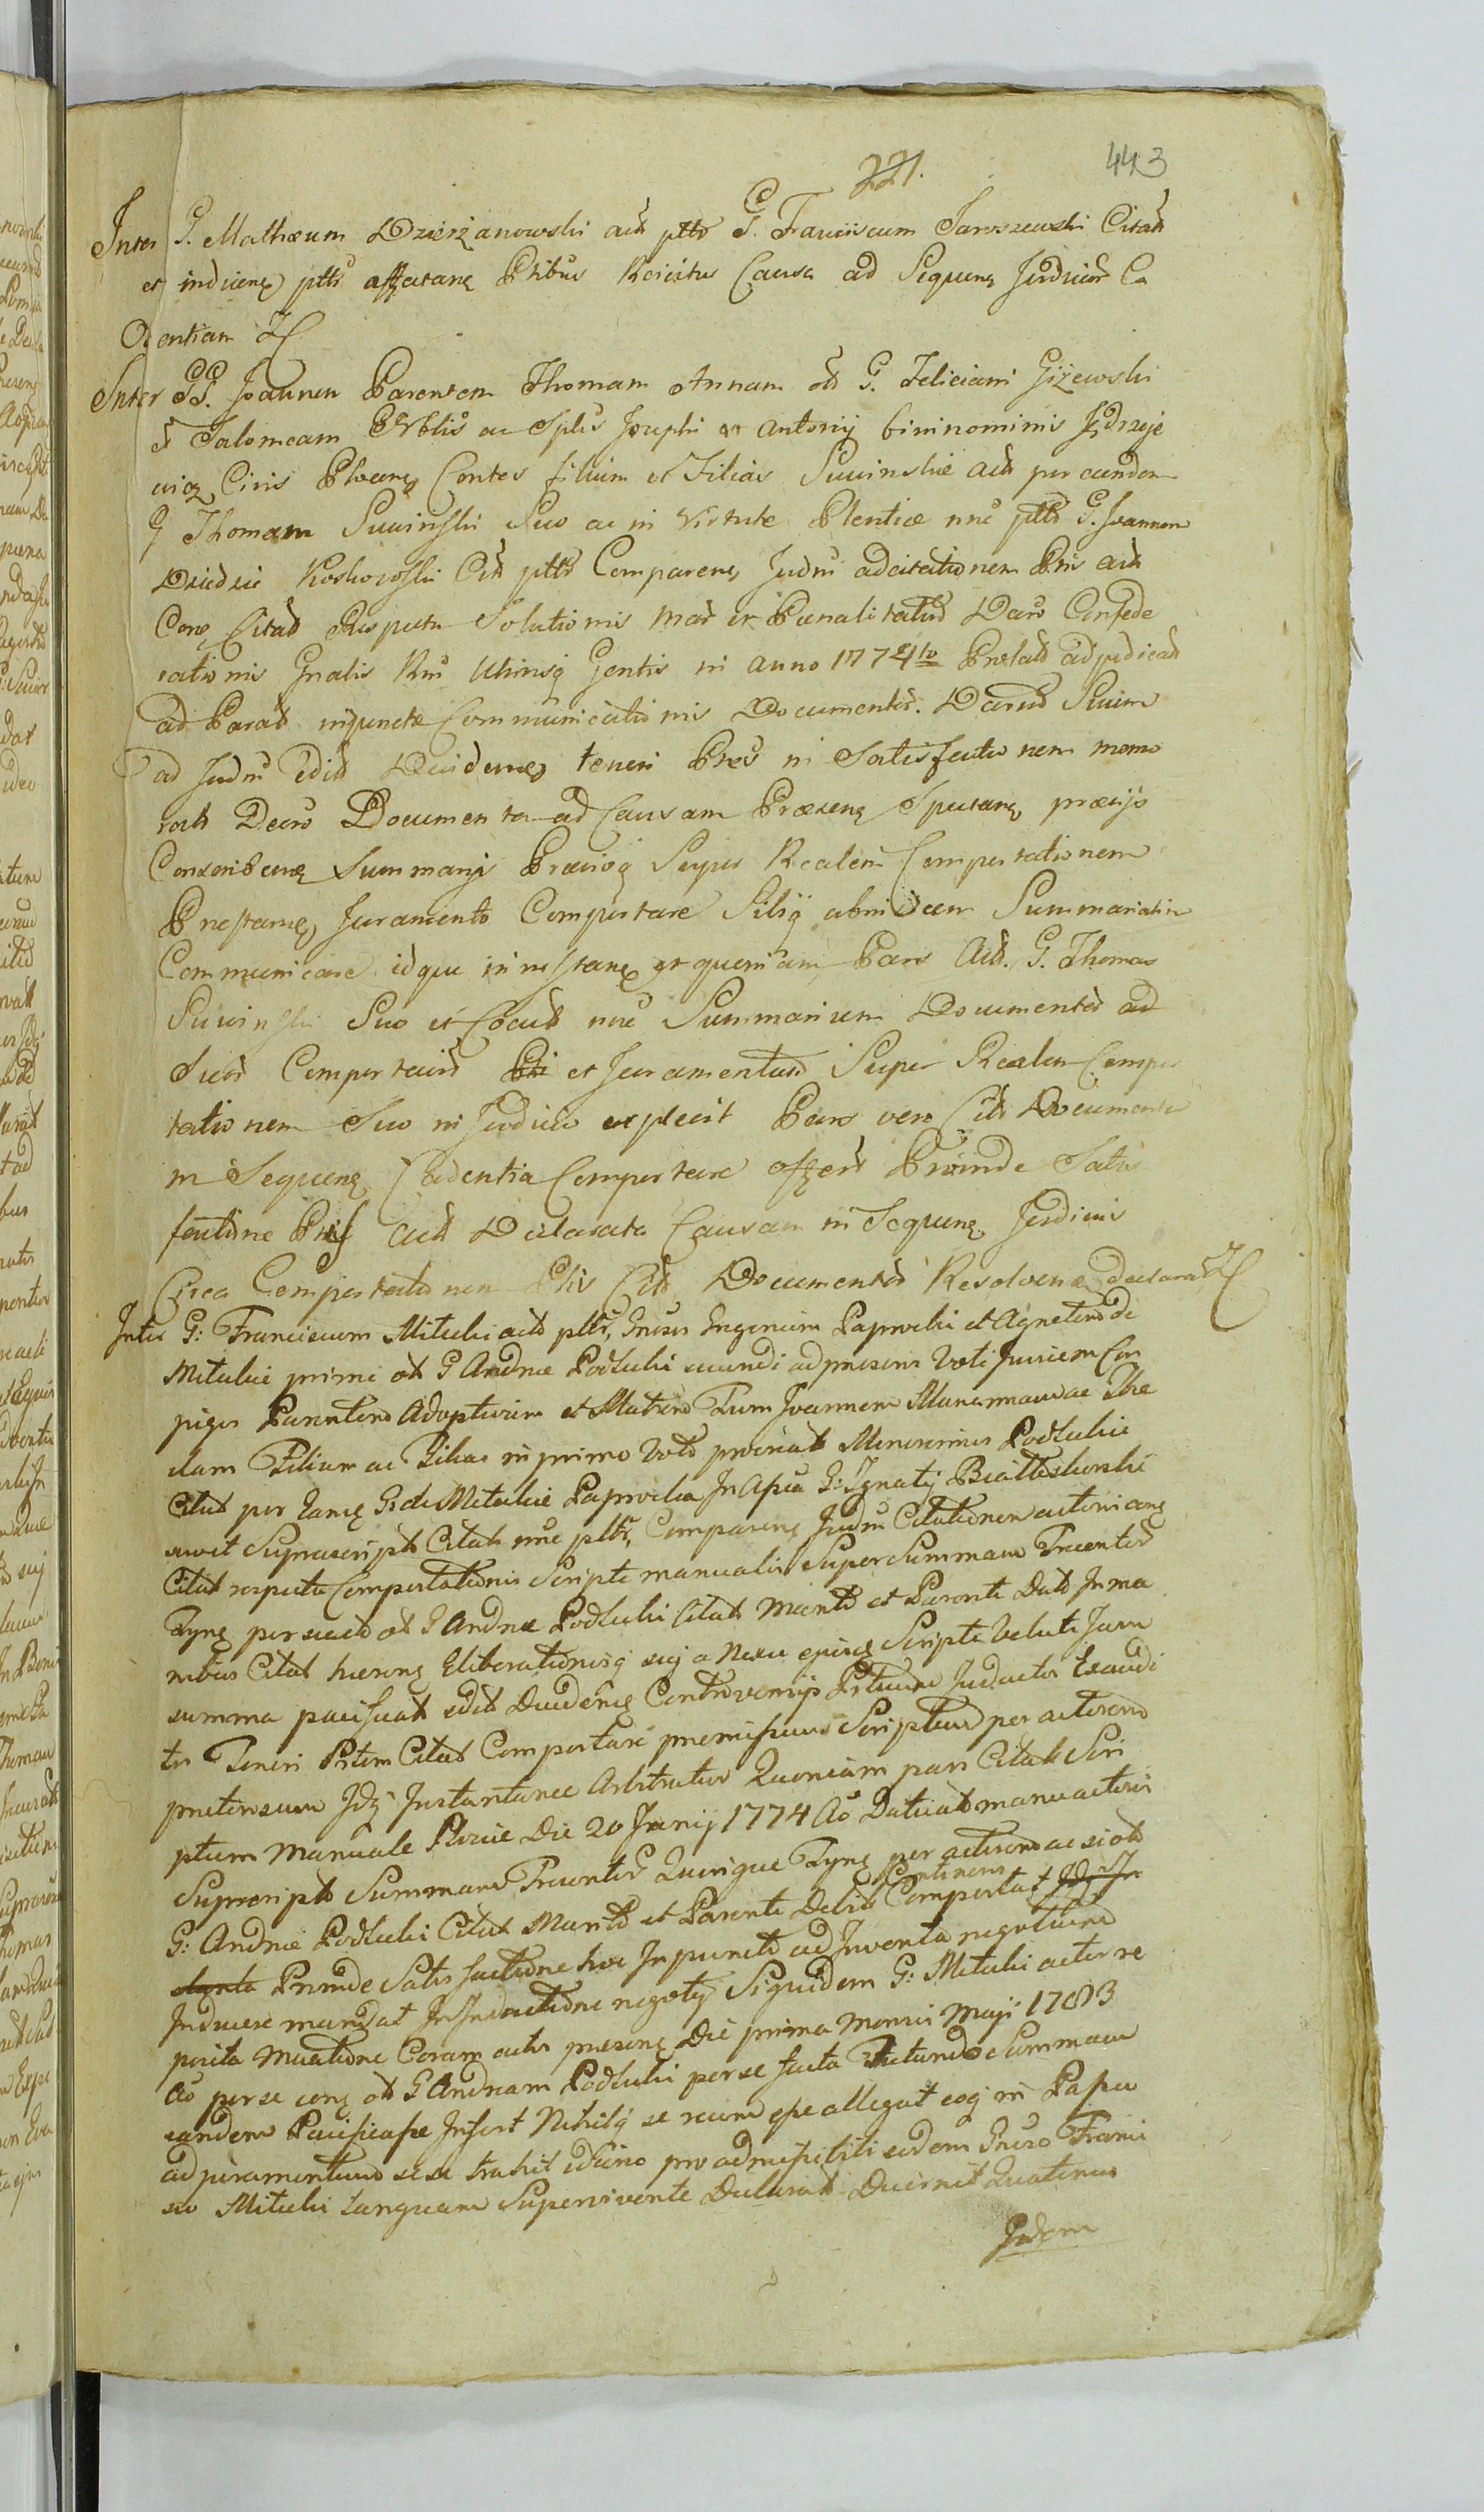 221. 443
Inter G. Mathæum Dzierżanowski act ptto G. Franciscum Jaroszewski Citat
et inducenꝫ ptto affectanꝫ Ptibus Reiicitur Causa ad Sequenꝫ Judicior Ca
dentiam
Inter GG. Joannem Parentem Thomam Annam ot G. Feliciani Giżewski
et Salomeam Ptblis ac Splis Josephi et Antonij binominis Jędrzeje
wicz Civis Plocenꝫ Contes filium et Filias Suwinskie act per eundem
G Thomam Suwinski Suo ac in Virtute Plentiæ nne ptto G. Joannem
Dziedzic Koskowski Citt ptto Comparenꝫ Judm adcitationem Ptis act
Conꝫ Citat Respectu Solutionis mar et Pœnalitatum Decro Confede
rationis Gnalis Rni Utriusq Gentis in anno 1774to Prolat adjudicat
ad Parat injunctæ Communicationis Documentor. Darum Suum
ad Judm edit Decidenꝫ teneri Ptes in Satisfactionem memo
rati Decro Documenta ad Causam Præsenꝫ Spectanꝫ prævijs
Conscribenꝫ Summarijs Præviog Super Realem Comportationem
Præstanꝫ Juramento Comportare Sibiq abinvicem Summariatim
Communicare idque in instanꝫ et quoniam Pars Act. G. Thomas
Suwinski Suo et Coact nne Summarium Documentor ad
Suar Comportavit et Juramentum Super Realem Compor
tationem Suo in Judicio explevit Pars vero Citt Documenta
in Sequenꝫ Cadentia Comportare offert Proinde Satis
factione Ptis act Declarata Causam in Sequenꝫ Judiciis
Circa Comportationem Ptis Citt Documentor Resolvenꝫ declarat
Inter G: Franciscum Mitulski act pltr, Gnosos Ingenium Paprocki et Agnetem de
Mitulskie primi ot G Andreæ Podleski secundi adpræsens Voti Juniem Con
juges Parentem Adoptivum et Matrem Tum Joannem Mariannam ac The
clam Filium ac Filias in primo Voto procreat Minorennes Podleskie
Citat per Eanꝫ G. de Mitulskie Paprocka In Assa G: Ignatij Białłoskorski
suo et Suprascript Citat nne pltr, Comparenꝫ Judm Citationem actorei conꝫ
Citat respectu Comportationis Scripti manualis Super Summam Trecentor
Tynꝫ per se ad ot G Andreæ Podleski Citat Marito et Parente Dato In ma
nibus Citat hærenꝫ Eliberationisq suj a Nexu ejusꝫ Scripti Veluti Jam
summa pacificat edit Decidenꝫ Controversijs Ptium Judactor Exaudi
tis Teneri Ptem Citat Comportare præmissum Scriptum per actorem
prætensum Idq Instantanee Arbitratur Quoniam pars Citat Scri
ptum Manuale Plociæ Die 20 Junij 1774 Ao Datum manu actorei
Suprascript Summam Trecentor Quinque Tynꝫ per actorem ac si ot
Continens
G: Andreæ Podleski Citat Marito et Parente Debit Comportat
Proinde Satisfactione hoc Inpuncto ad Inventa negotium
Inducere mandat In Inductione negotij Siquidem G: Mitulski actor re
posita mutatione Coram actis præsenꝫ Die prima Mensis Maji 1783
Ao per se conꝫ ot G Andream Podleski per se facta Statuendo Summam
eandem Pacificasse Infert Nihilq se reum esse allegat eoq in Passu
ad juramentum sese trahit idcirco pro admissibili eidem Gnoso Franci
sco Mitulski tanquam Supervivente Declarat Decernit Quatenus
Judem